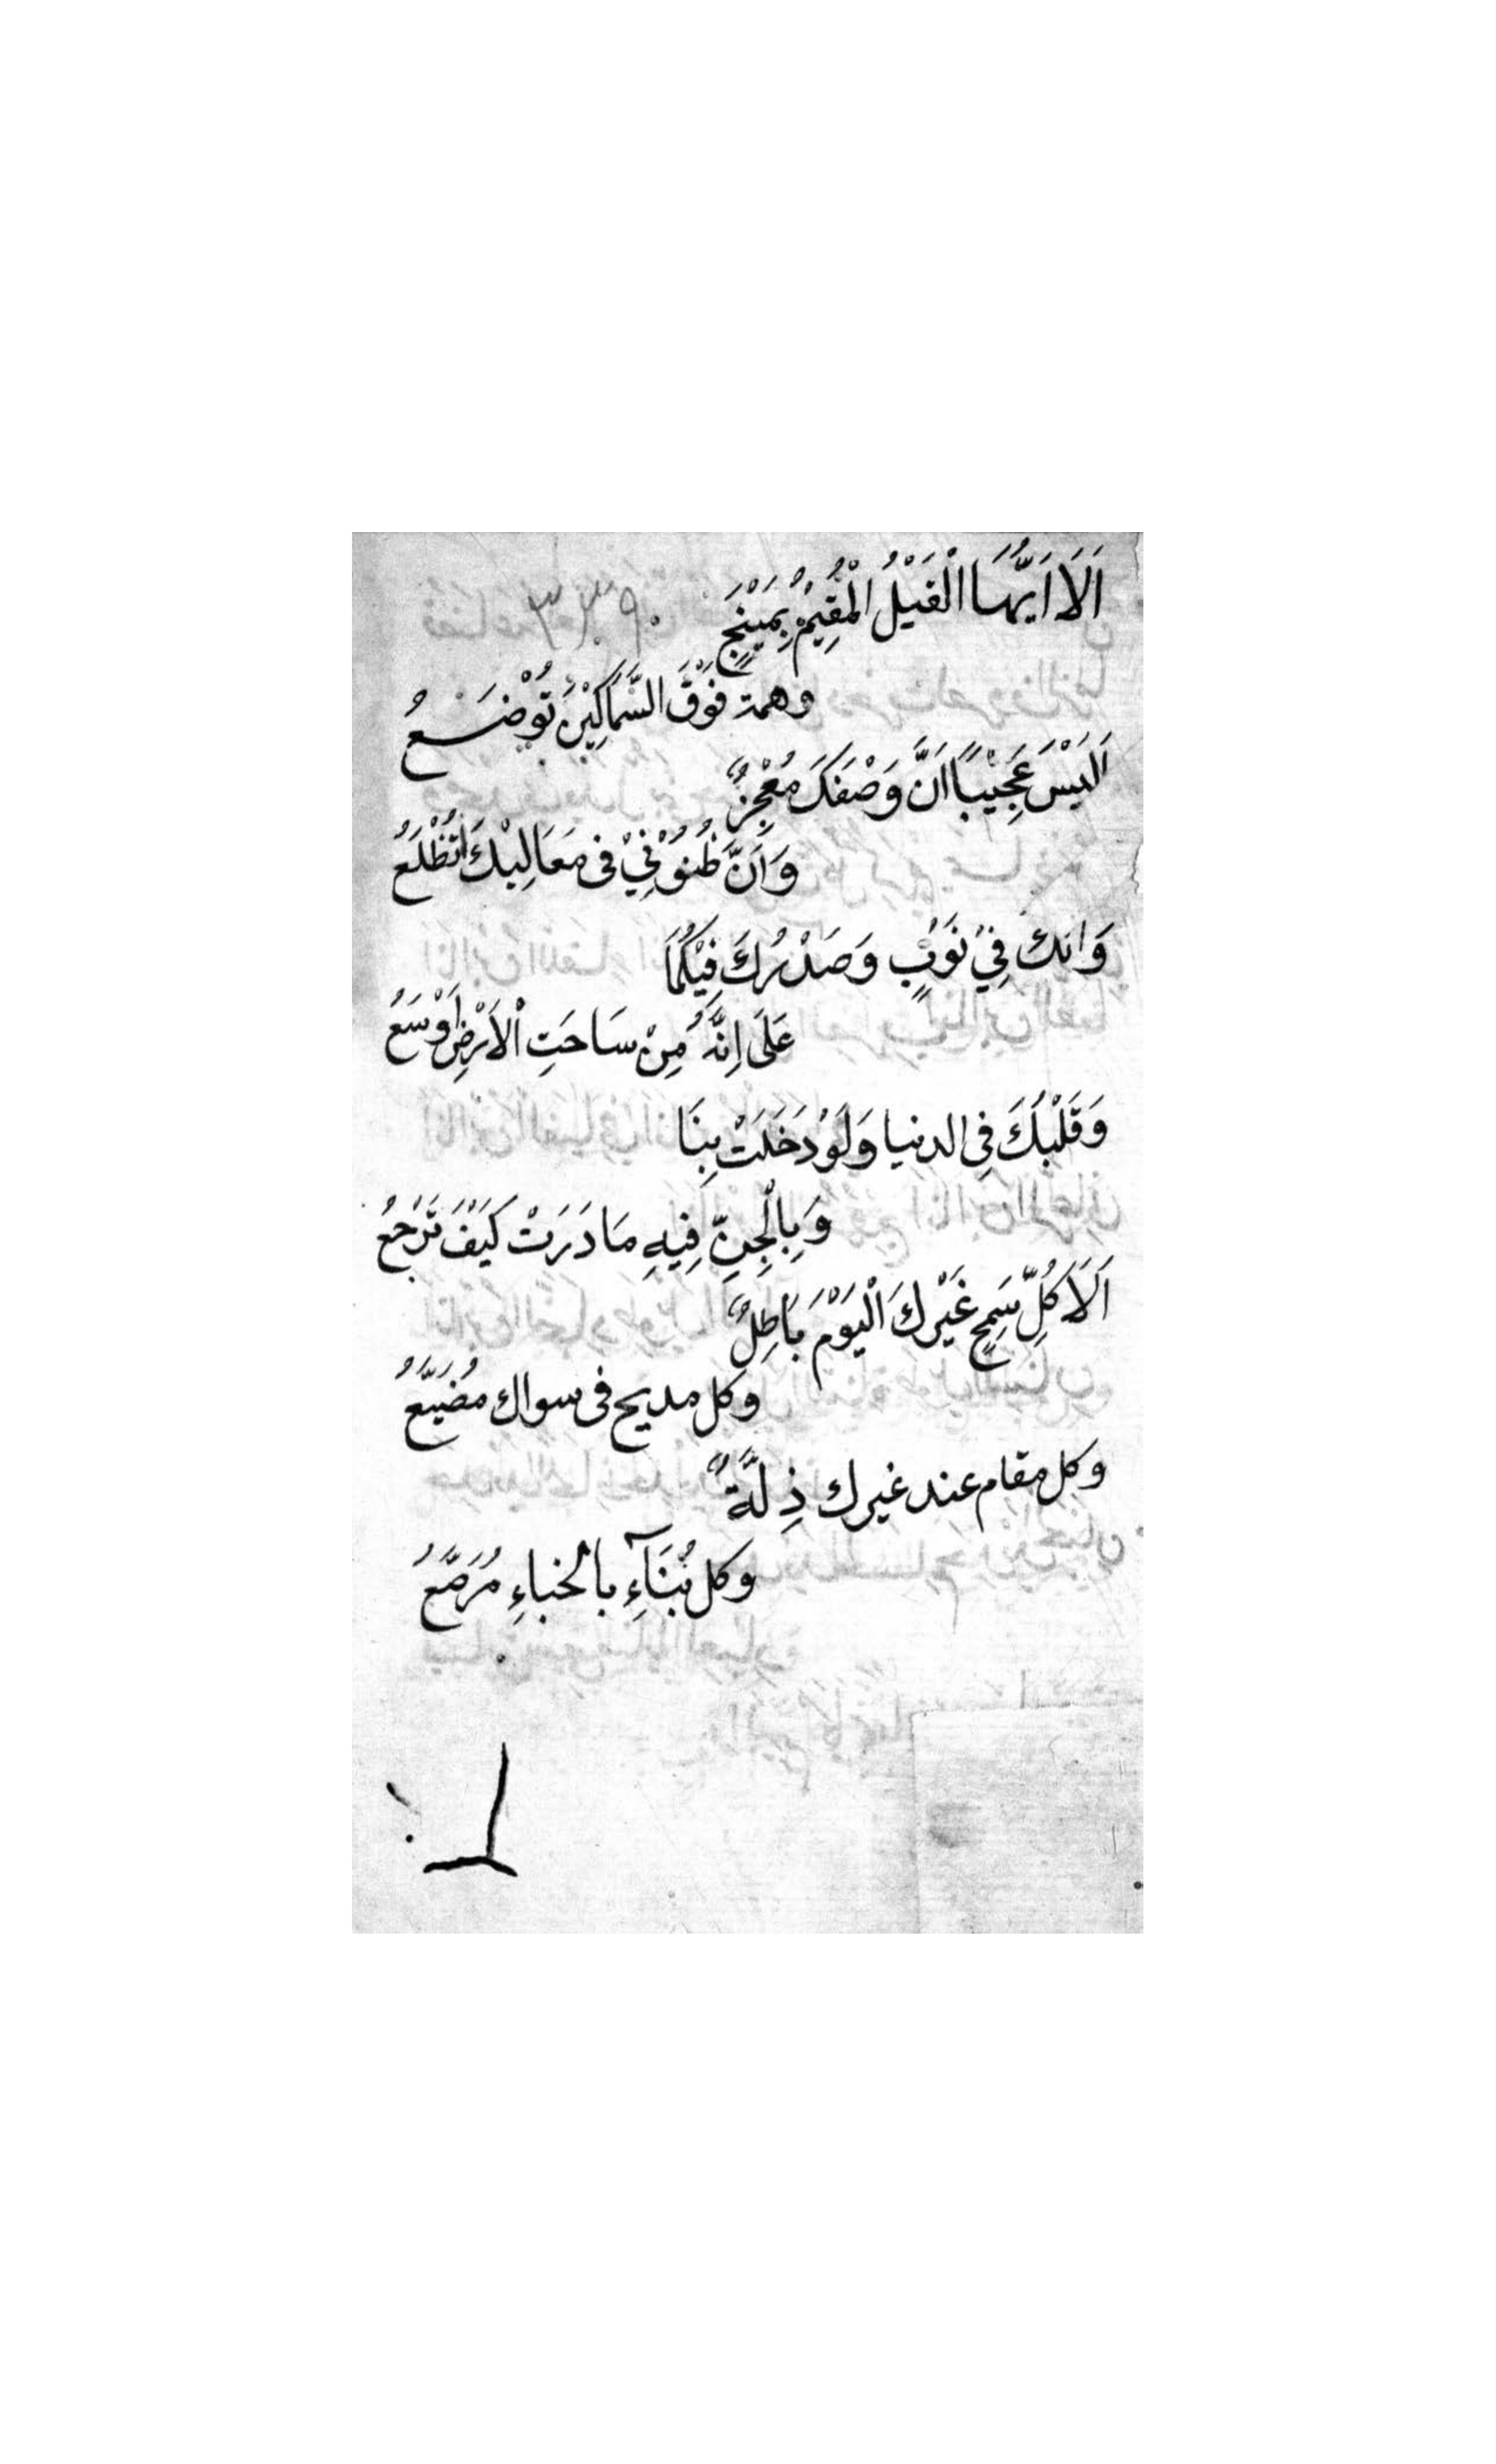 اَلَا اَيُّهَا الْفَيْلُ الْمُقِيْمُ بِمَيْنَجٍ
وهمة فَوْقَ السَّمَاكِيْنَ تُوْضَعُ
اَلَيْسَ عَجِيْبًا اَنَّ وَصْفَكَ مُعْجِزٌ
وَاَنَّ ظُنُوْنِيْ فى مَعَالِيْكَ تُظْلَعُ
وَانك فِيْ ثَوْبٍ وَصَدْرُكَ فِيْكُمَا
عَلَى اِنَّهُ مِنْ سَاحَتِ الْاَرْضِ اَوْسَعُ
وَقَلْبُكَ فِى الدنيا وَلَوْ دَخَلَتْ بِنَا
وَبِالْجِنِّ فِيهِ مَا دَرَتْ كَيْفَ تَرْجعُ
اَلَا كُلِّ سَمِحٍ غَيْرِكَ الْيَوْمَ بَاطِلٌ
وكل مديح فى سواك مُضَيَّعُ
وكل مقام عند غيرك ذِلَّةٌ
وكل بُنَآءِ بالخباءِ مُرَصَّعُ